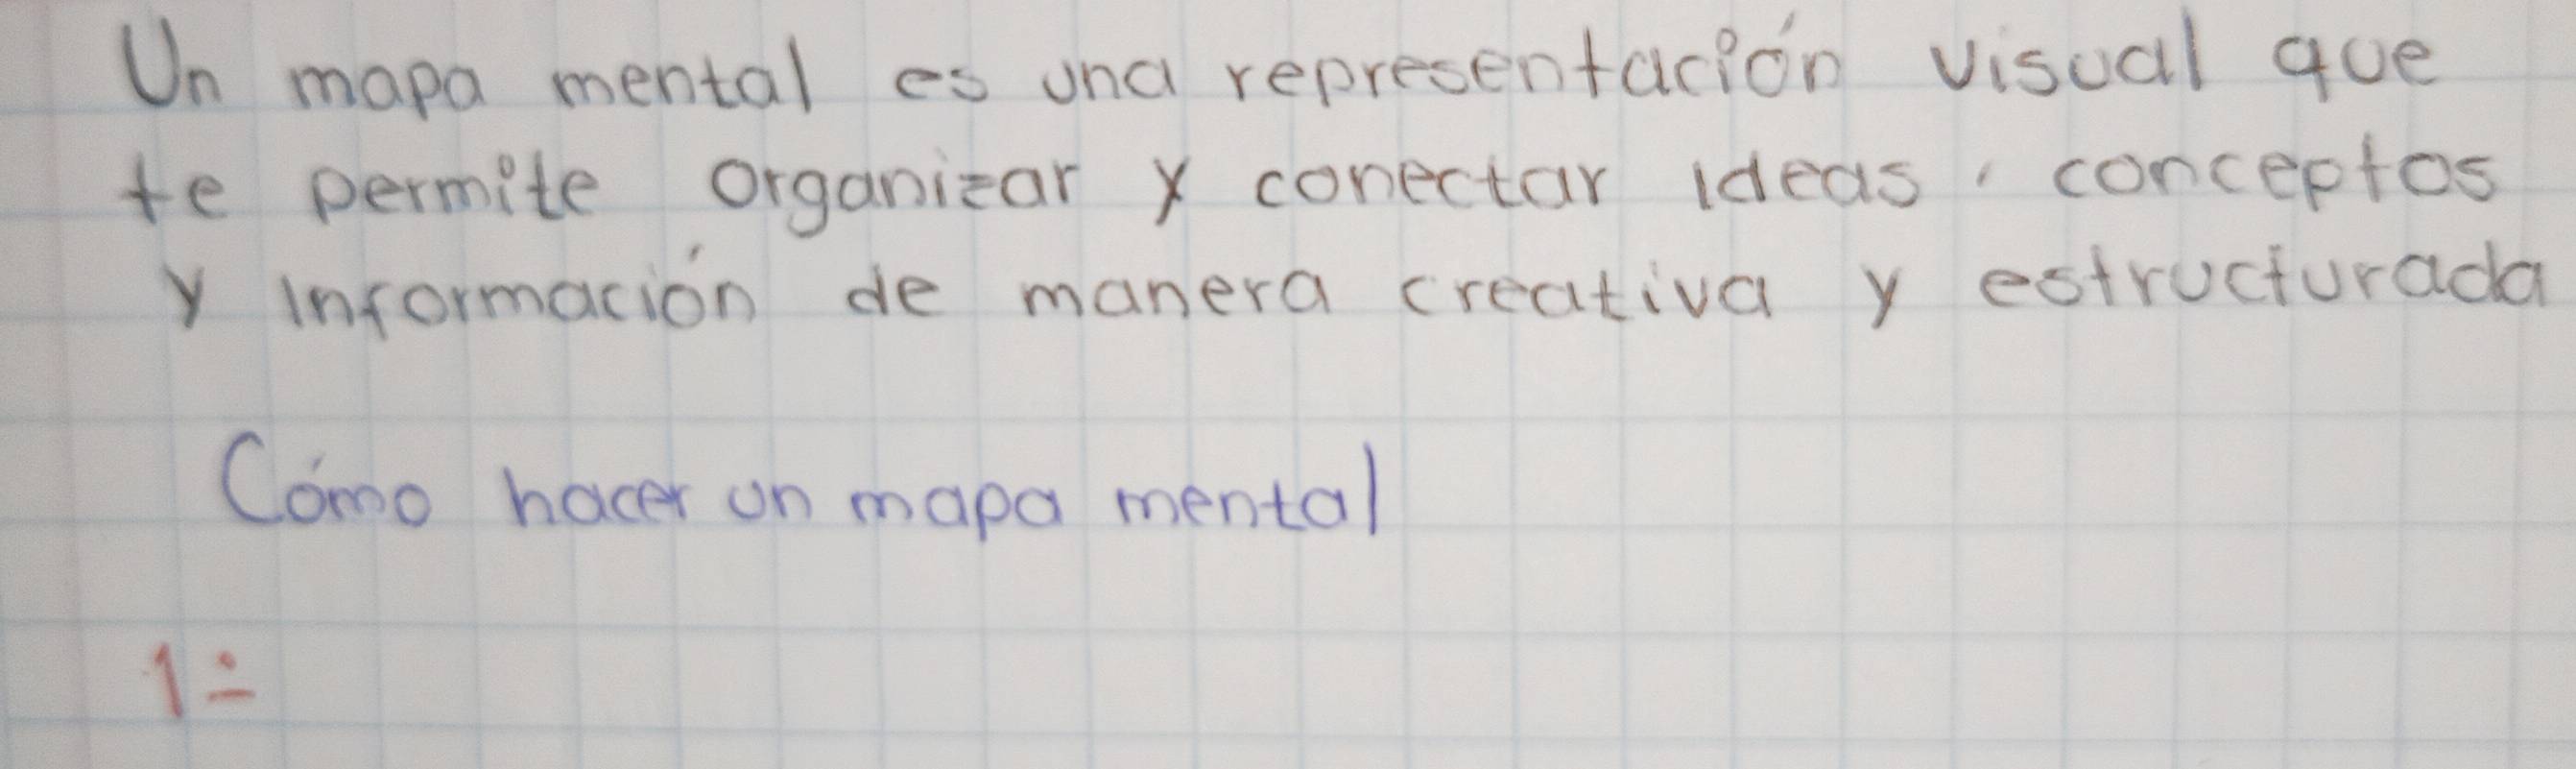 Un mapa mental es una representación visual que
te permite organizar y conectar ideas, conceptos
y información de manera creativa y estructurada
Cómo hacer un mapa mental
1.-